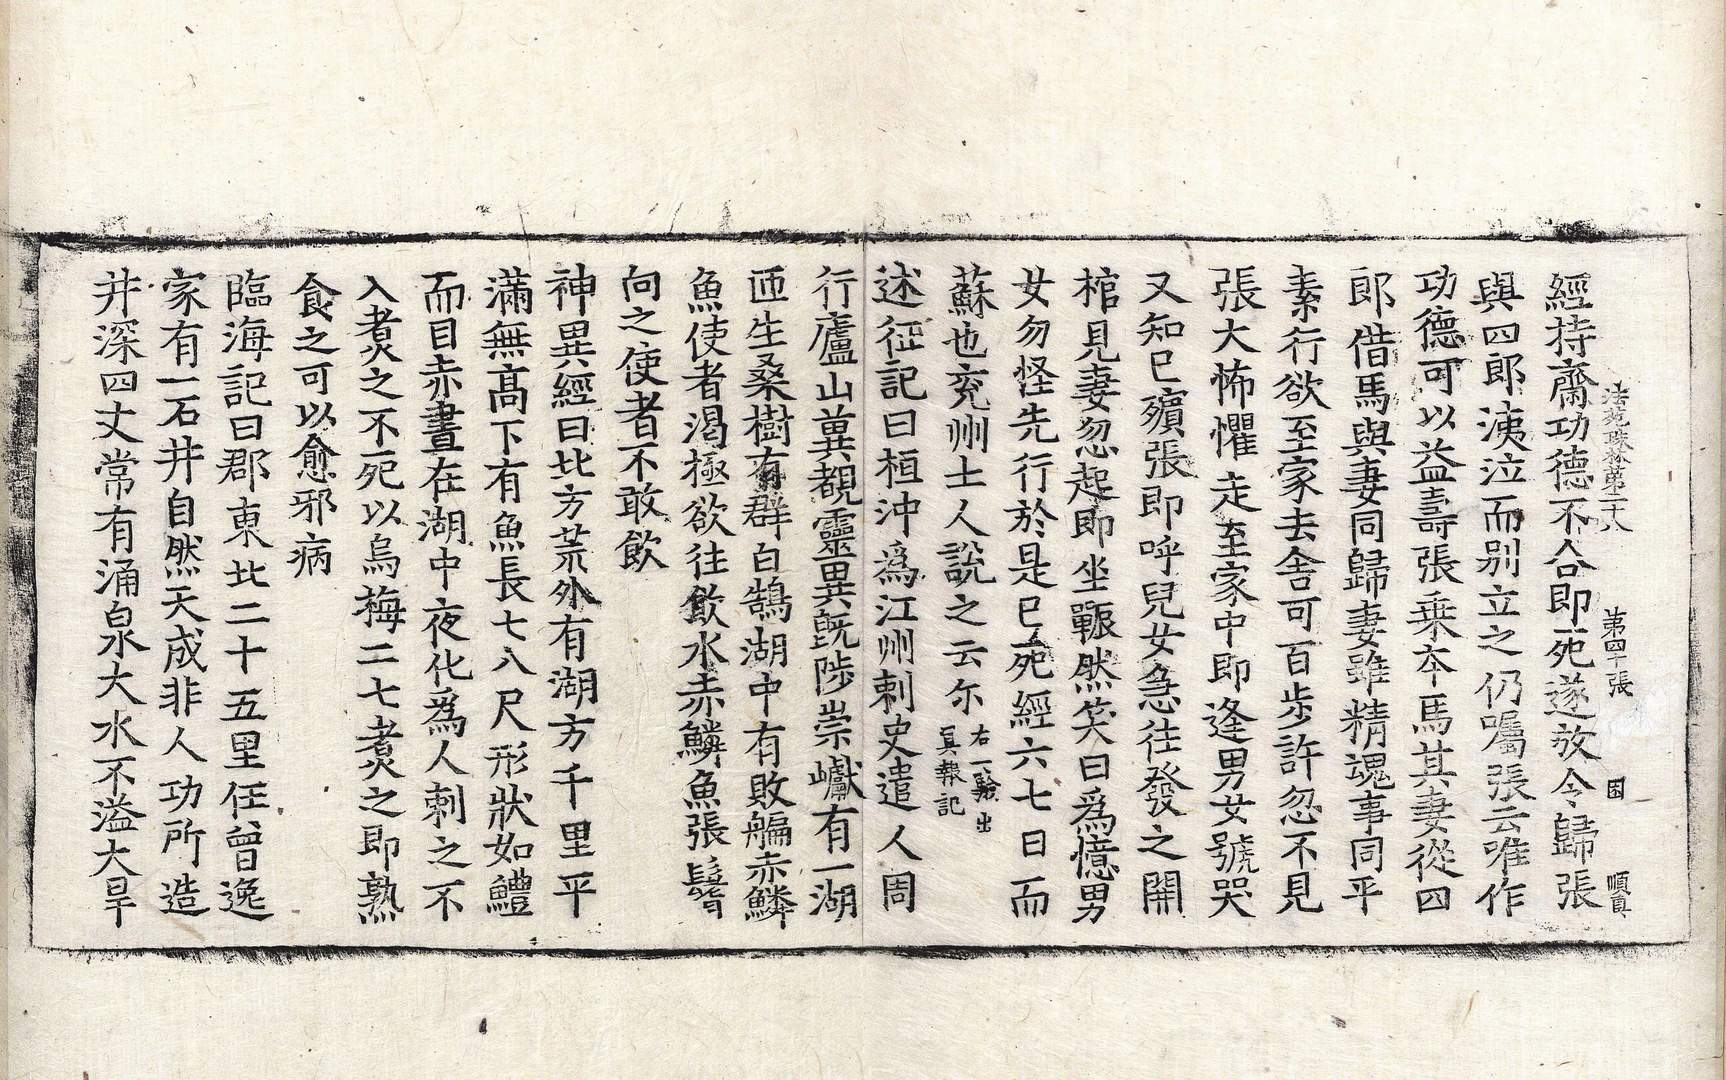 法苑珠林第二十八　第四十張　困　順貞
經持齋功德不合即死遂放令歸張
與四郎洟泣而别立之仍囑張云唯作
功德可以益壽張乗本馬其妻從四
郎借馬與妻同歸妻雖精魂事同平
素行欲至家去舎可百步許忽不見
張大怖懼走至家中即逢男女號哭
又知已殯張即呼兒女急往發之開
棺見妻忽起即坐囅然笑曰爲憶男
女勿怪先行於是已死經六七日而
蘇也兖州土人說之云尒右一驗出冥報記
述征記曰桓沖爲江州刺史遣人周
行廬山兾覩靈異旣陟崇巘有一湖
匝生桑樹有群白鵠湖中有敗艑赤鱗
魚使者渴極欲往飲水赤鱗魚張鬐
向之使者不敢飲
神異經曰北方荒外有湖方千里平
滿無高下有魚長七八尺形狀如鱧
而目赤晝在湖中夜化爲人刺之不
入煮之不死以烏梅二七煮之即熟
食之可以愈邪病
臨海記曰郡東北二十五里任曾逸
家有一石井自然天成非人功所造
井深四丈常有涌泉大水不溢大旱